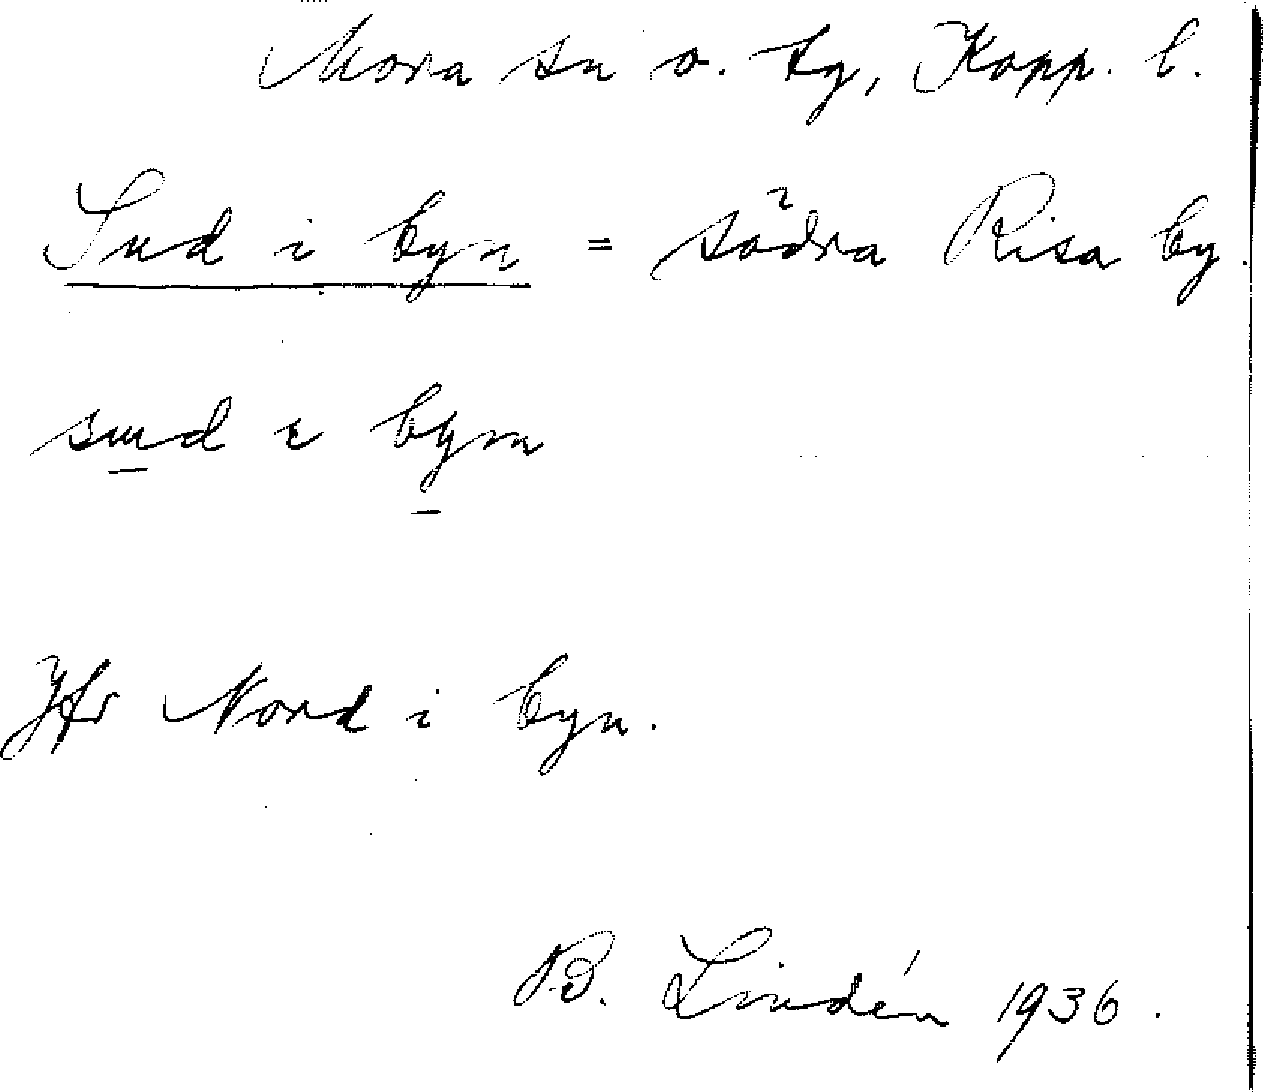 Mora sn o. tg, Kopp. l.
Sud i byn = södra Risa by.
sud i byn
Jfr Nord i byn.
B. Lindén 1936.